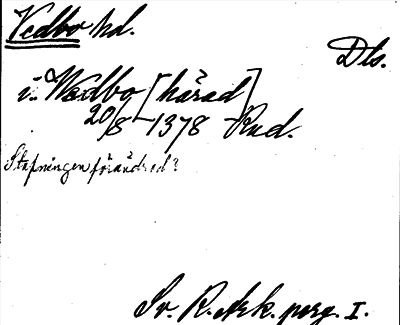 Vedbo hd.
Dls.
i Wædbo [härad]
20/8 1378 Rud.
Stafningen förändrad?
Sv. R. Ark. perg. I.